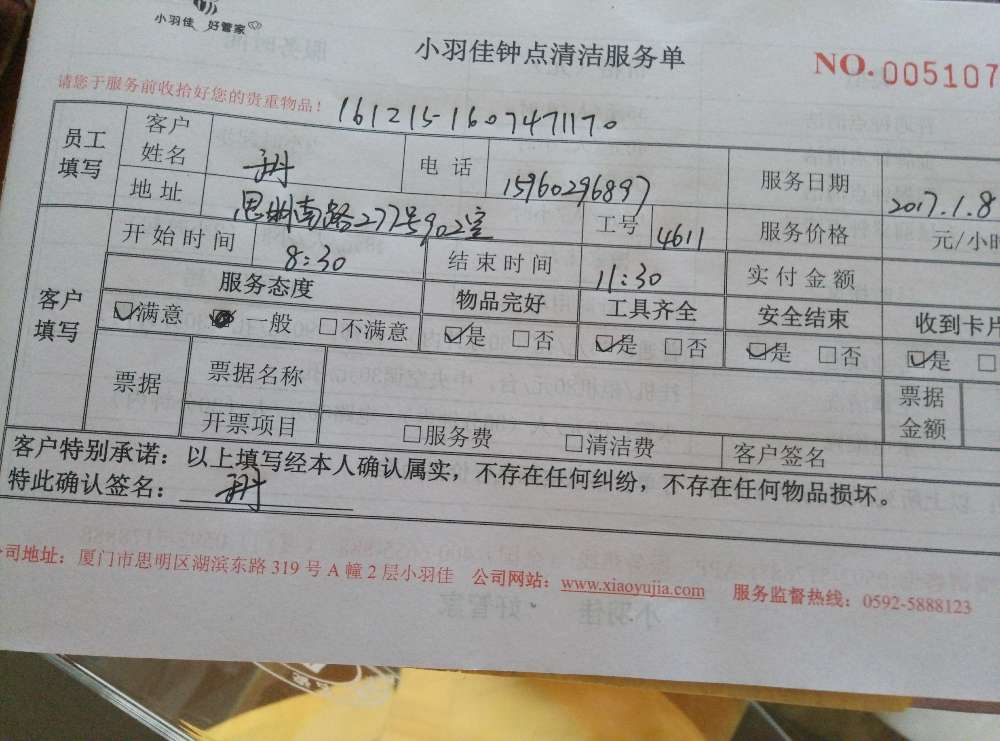 小羽佳 好管家
小羽佳钟点清洁服务单
NO. 005107
请您于服务前收拾好您的贵重物品!
161215-1607471170
员工填写 客户姓名 电话 15960296897 服务日期 2017.1.8
地址 思明南路277号902室 工号 4611 服务价格 元/小时
客户填写 开始时间 8:30 结束时间 11:30 实付金额
服务态度 物品完好 工具齐全 安全结束 收到卡片
☑满意 一般 □不满意 ☑是 □否 ☑是 □否 ☑是 □否 ☑是 □
票据 票据名称 票据金额
开票项目 □服务费 □清洁费 客户签名
客户特别承诺:以上填写经本人确认属实,不存在任何纠纷,不存在任何物品损坏。
特此确认签名:
司地址:厦门市思明区湖滨东路 319 号 A 幢 2 层小羽佳 公司网站:www.xiaoyujia.com 服务监督热线:0592-5888123